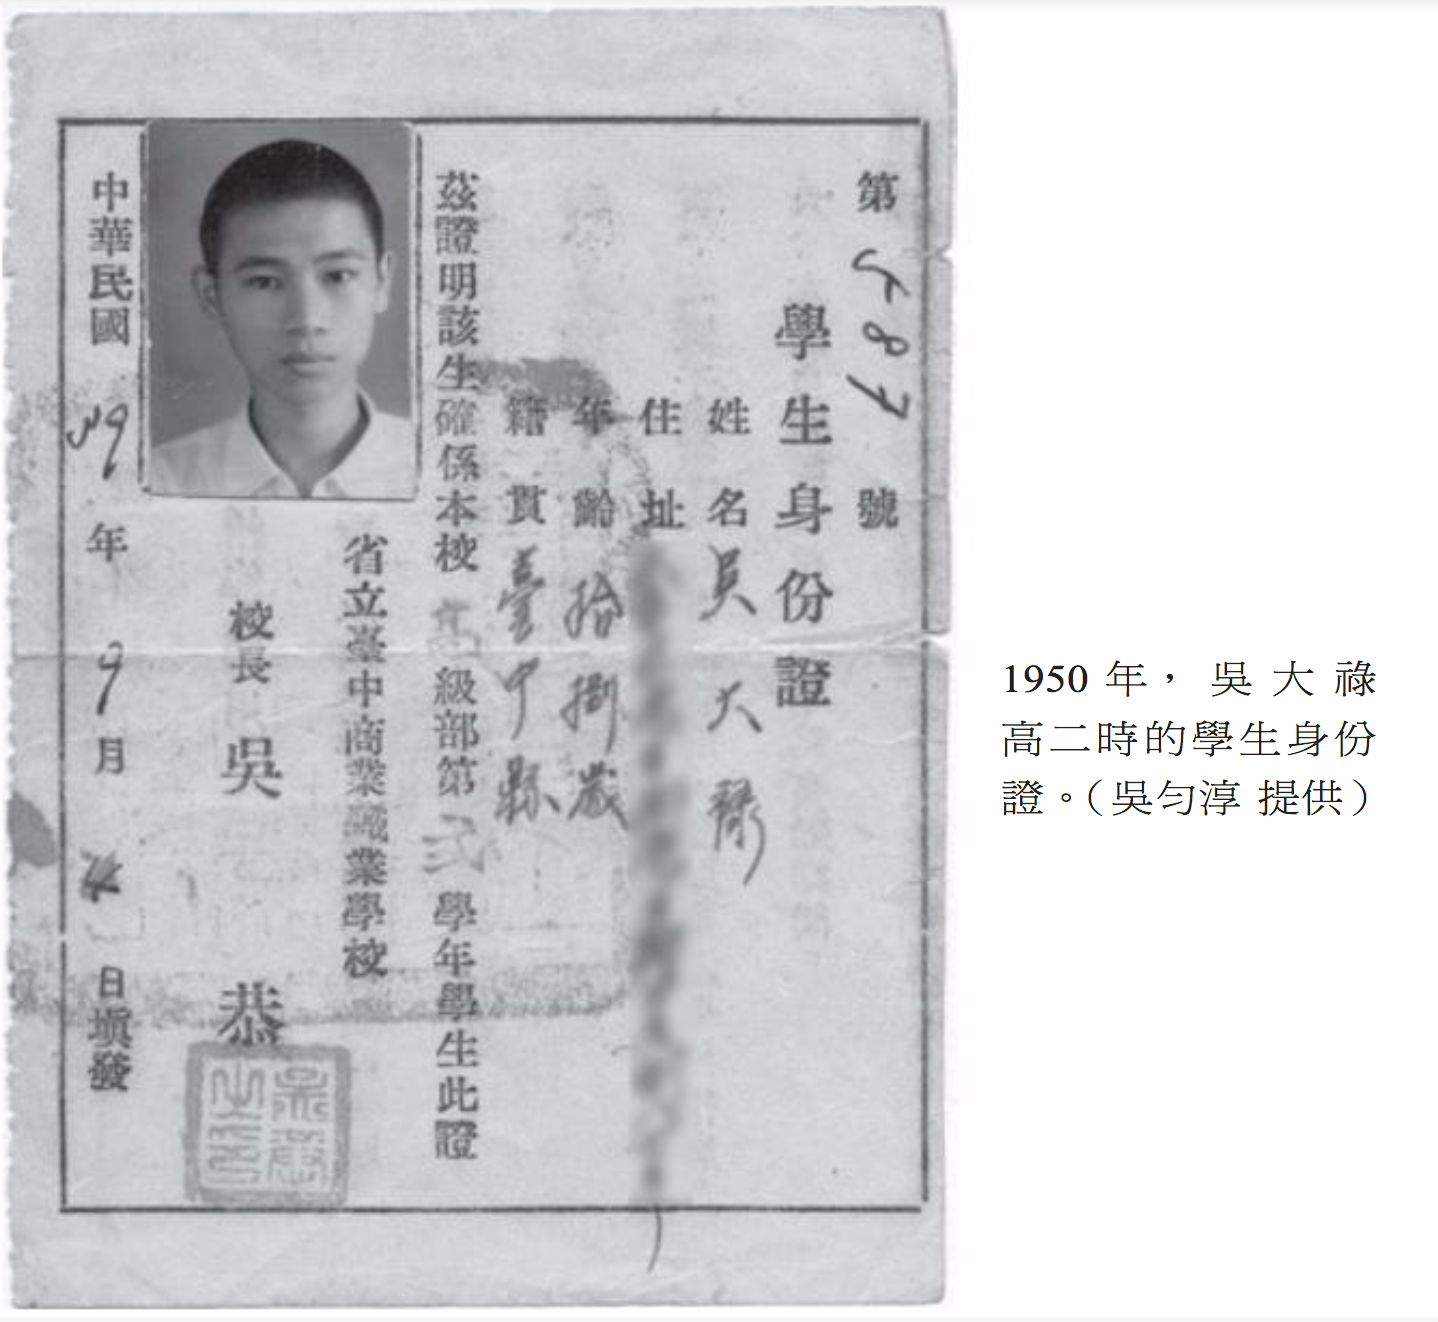 第587號
學生身份證
姓名 吳大祿
住址
年齡 拾捌歲
籍貫 臺中縣
茲證明該生確係本校高級部第弍學年學生此證
省立臺中商業職業學校
校長 吳恭
中華民國39年9月日塡發
1950 年， 吳 大 祿
高二時的學生身份
證。（吳勻淳 提供）